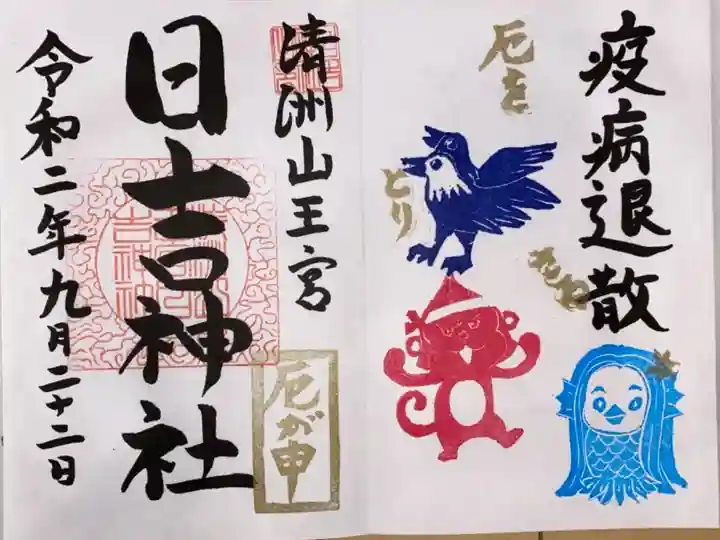 疫病退散
厄を
とり
さる
清洲山王宮
日吉神社
厄が申
令和二年九月二十二日